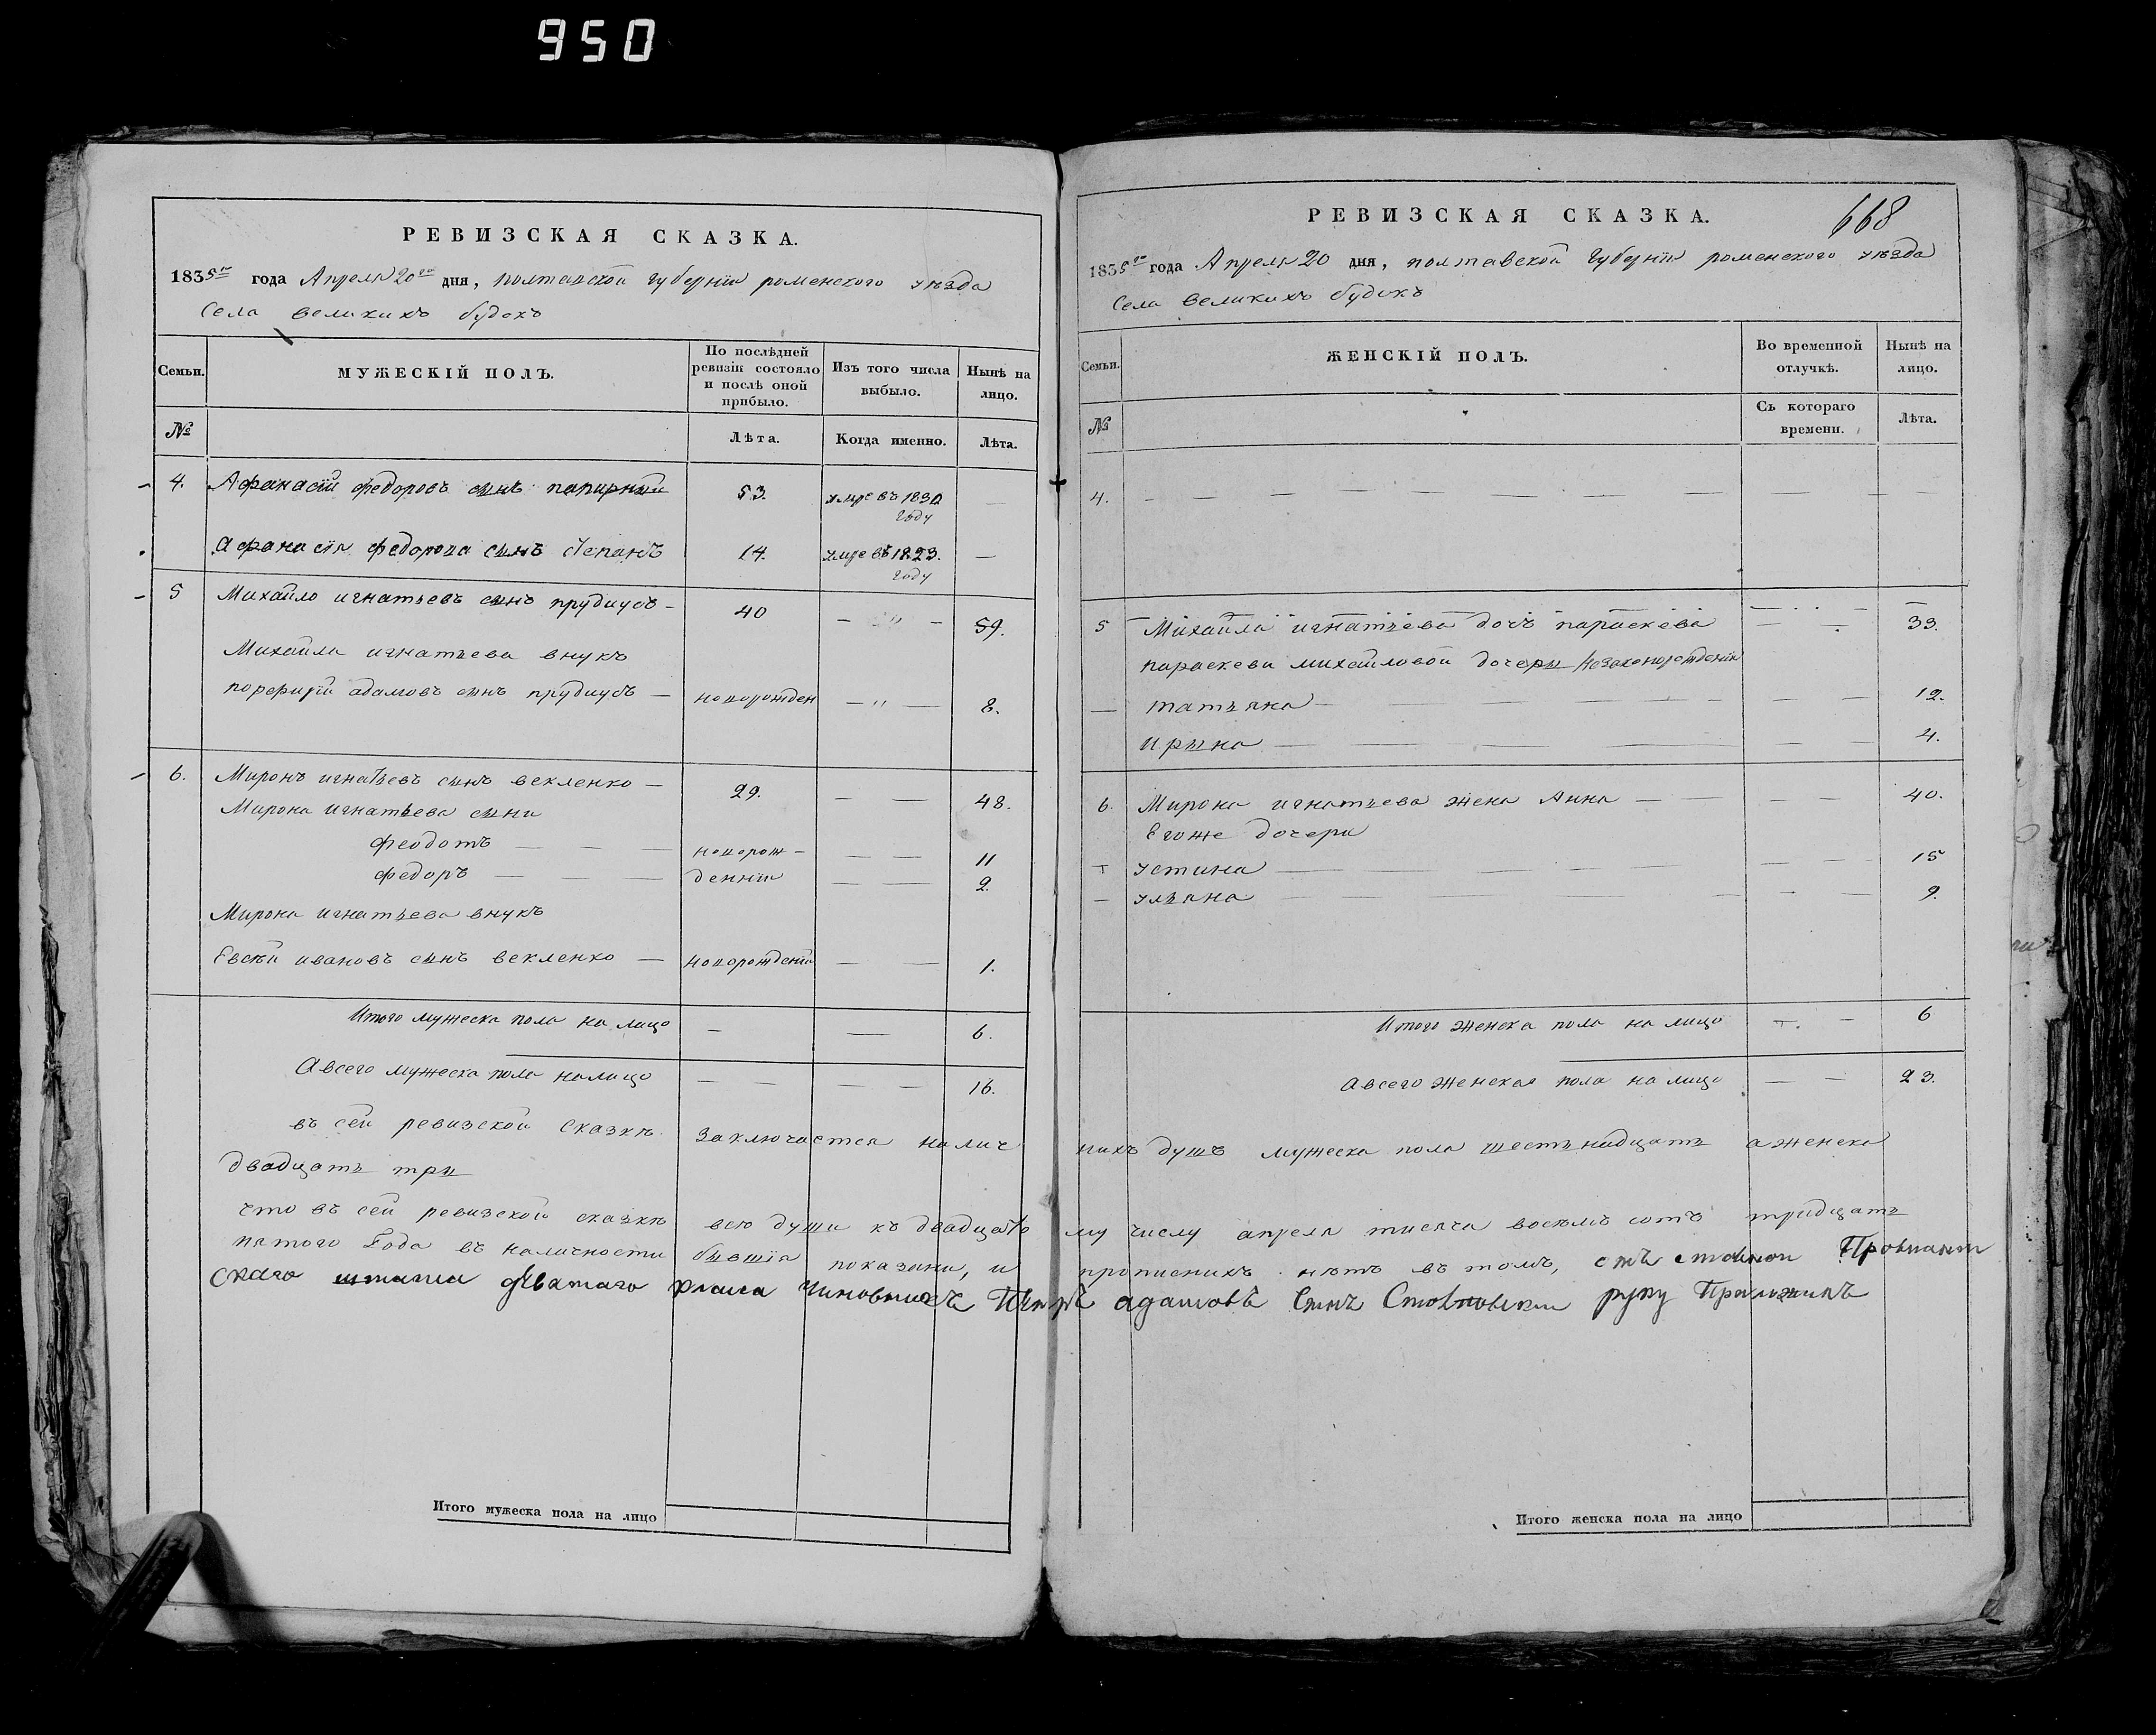 950
РЕВИЗСКАЯ СКАЗКА.
1835го года Апреля 20го дня, полтавской губернїи роменского уезда
Села великихъ будокъ
Семьи.
МУЖЕСКІЙ ПОЛЪ.
По послѣдней ревизіи состояло и послѣ оной прибыло.
Изъ того числа выбыло.
Нынѣ на лицо.
№
Лѣта.
Когда именно.
Лѣта.
4. Афанасїй федоровъ сынъ папирный 53. умре въ 1830 году —
Афанасїя федорова сынъ степанъ 14. умре въ 1823. году —
5 Михайло игнатьевъ сынъ прудиусъ — 40 — " — 59.
Михайла игнатьева внукъ
порфирїй адамовъ сынъ прудиусъ — новорожден — " — 8.
6. Миронъ игнатьевъ сынъ векленко — 29. — — 48.
Мирона игнатьева сыни
феодотъ — — — новорож- — — 11
федоръ — — — деннїи — — 2.
Мирона игнатьева внукъ
Евсѣй ивановъ сынъ векленко — новорожденїй — — 1.
Итого мужеска пола на лицо — — 6.
А всего мужеска пола налицо — — — — 16.
въ сей ревизской сказкѣ заключается налич
двадцать три
что въ сей ревизской сказкѣ всю души къ двадцато
пятого Года въ наличности бывшїя показани, и
скаго штата девятаго класа чиновникъ Петръ
Итого мужеска пола на лицо
РЕВИЗСКАЯ СКАЗКА.
668
1835го года Апреля 20 дня, полтавской губернїи роменского уезда
Села великихъ будокъ
Семьи.
ЖЕНСКІЙ ПОЛЪ.
Во временной отлучкѣ.
Нынѣ на лицо.
№
Съ котораго времени.
Лѣта.
4. — — — — — — — — —
5 Михайла игнатьева дочъ параскева — — 33.
параскеви михайловой дочери незаконорожденїи
татьяна — — — — 12.
ирына — — — — 4.
6. Мирона игнатьева жена Анна — — — — 40.
Егоже дочери
устина — — — — 15
ульяна — — — — 9.
Итого женска пола на лицо — — 6
А всего женская пола на лицо — — 23.
нихъ душъ мужеска пола шестьнадцать а женска
му числу апреля тисяча восемъ сотъ тридцать
прописнихъ нѣтъ въ томъ, Провиант
адамовъ Сынъ руку Приложилъ
Итого женска пола на лицо